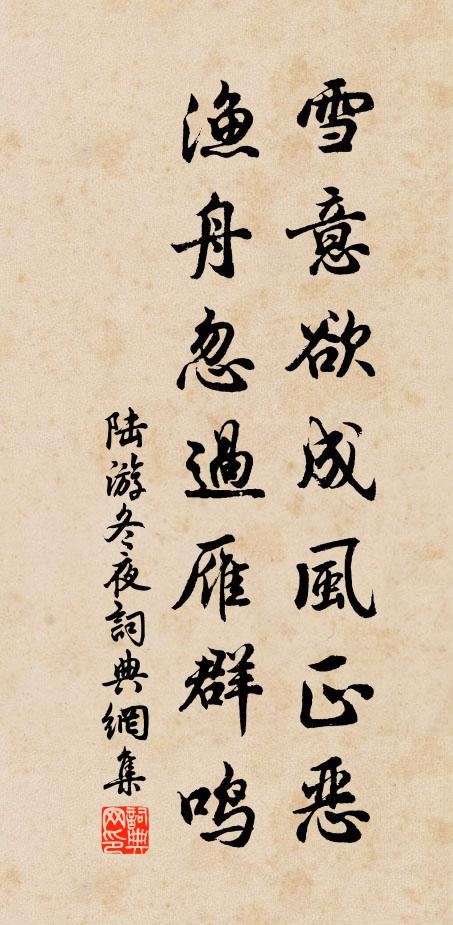 雪意欲成風正恶
漁舟忽過雁群鸣
陆游冬夜詞典網集
詞典网印